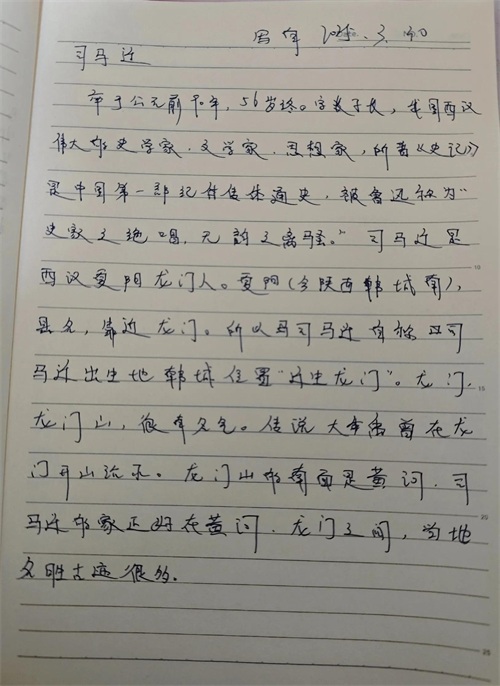 2025.3.30
司马迁
卒于公元前90年，56岁终。字数子长，我国西汉
伟大的史学家、文学家、思想家，所著《史记》
是中国第一部纪传体通史，被鲁迅称为"
史家之绝唱，无韵之离骚。"司马迁是
西汉夏阳龙门人。夏阳(今陕西韩城南)，
县名，靠近龙门。所以司马迁自称
马迁出生地韩城位置"迁生龙门"。龙门，
龙门山，很有名气。传说大禹曾在龙
门开山治水。龙门山的南面是黄河，司
马迁的家正好在黄河、龙门之间，当地
名胜古迹很多。